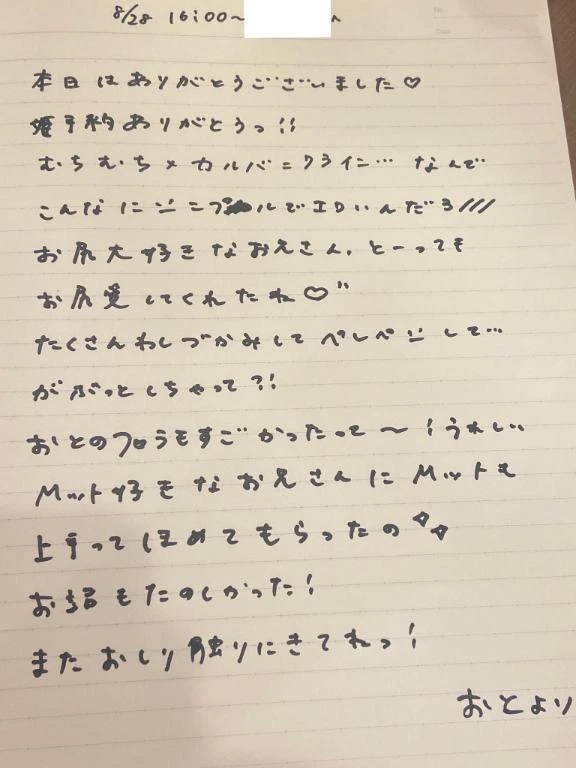 8/28 16:00~
本日はありがとうございました♡
姫予約ありがとうっ!!
むちむち×カルバンクライン… なんで
こんなにシンプルでエロいんだろ///
お尻大好きなお兄さん、とーっても
お尻愛してくれたね♡"
たくさんわしづかみしてペシペシして…
がぶっとしちゃって?!
おとのフロうもすごかったって〜!うれしい
Mット好きなお兄さんにMットも
上手ってほめてもらったの
お話もたのしかった!
またおしり触りにきてねっ!
おとより